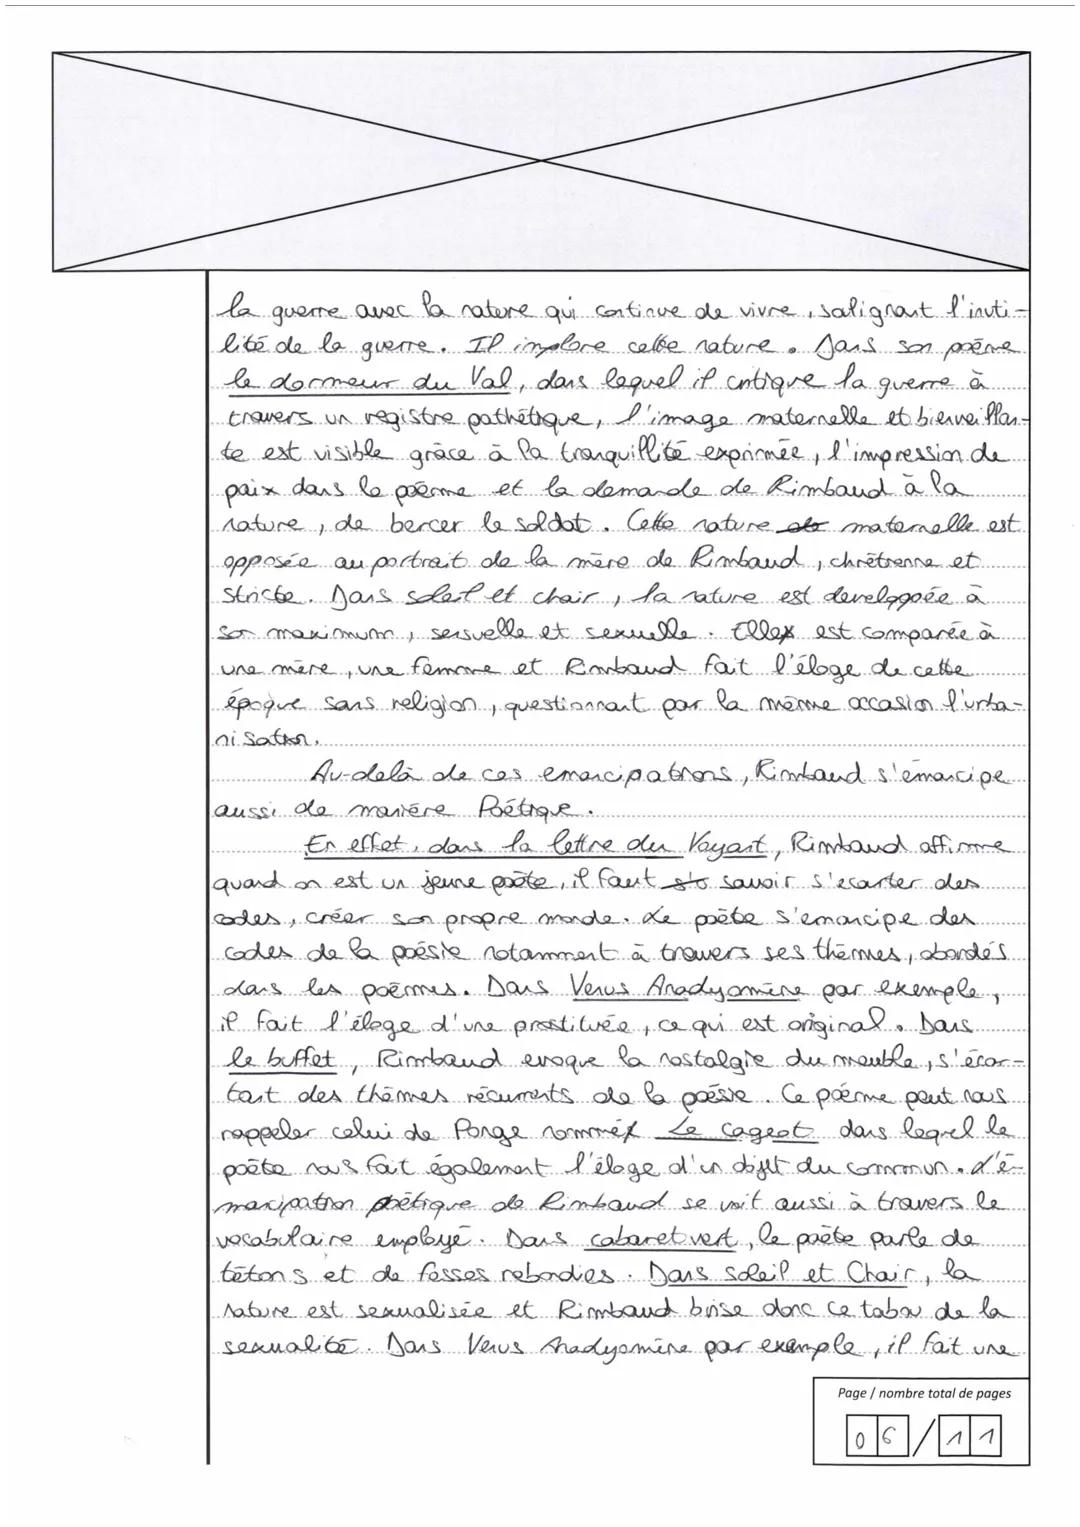 la guerre avec la nature qui continue de vivre, salignant l'inuti-
lité de la guerre. Il implore cette nature. Dans son poème
le dormeur du Val, dans lequel il critique la guerre à
travers un registre pathétique, l'image maternelle et bienveillan-
te est visible grâce à la tranquillité exprimée, l'impression de
paix dans le poème et la demande de Rimbaud à la
nature, de bercer le soldat. Cette nature maternelle est
opposée au portrait de la mère de Rimbaud, chrétienne et
stricte. Dans soleil et chair, la nature est developpée à
son maximum, sensuelle et sexuelle. Elle est comparée à
une mère, une femme et Rimbaud fait l'éloge de cette
époque sans religion, questionnant par la même occasion l'urba-
nisation.
Au-delà de ces emancipations, Rimbaud s'émancipe
aussi de manière Poétique.
En effet, dans la lettre du Voyant, Rimbaud affirme
quand on est un jeune poète, il faut savoir s'ecarter des
codes, créer son propre monde. Le poète s'emancipe des
codes de la poésie notamment à travers ses thèmes, abordés
dans les poèmes. Dans Venus Anadyomène par exemple,
il fait l'éloge d'une prostituée, ce qui est original. Dans
le buffet, Rimbaud evoque la nostalgie du meuble, s'écar-
tant des thèmes récurrents de la poésie. Ce poème peut nous
rappeler celui de Ponge nommé Le cageot dans lequel le
poète nous fait également l'éloge d'un objet du commun. L'é-
mancipation poétique de Rimbaud se voit aussi à travers le
vocabulaire employé. Dans cabaret vert, le poète parle de
tétons et de fesses rebondies. Dans Soleil et Chair, la
nature est sexualisée et Rimbaud brise donc ce tabou de la
sexualité. Dans Venus Anadyomène par exemple, il fait une
Page / nombre total de pages
06/11